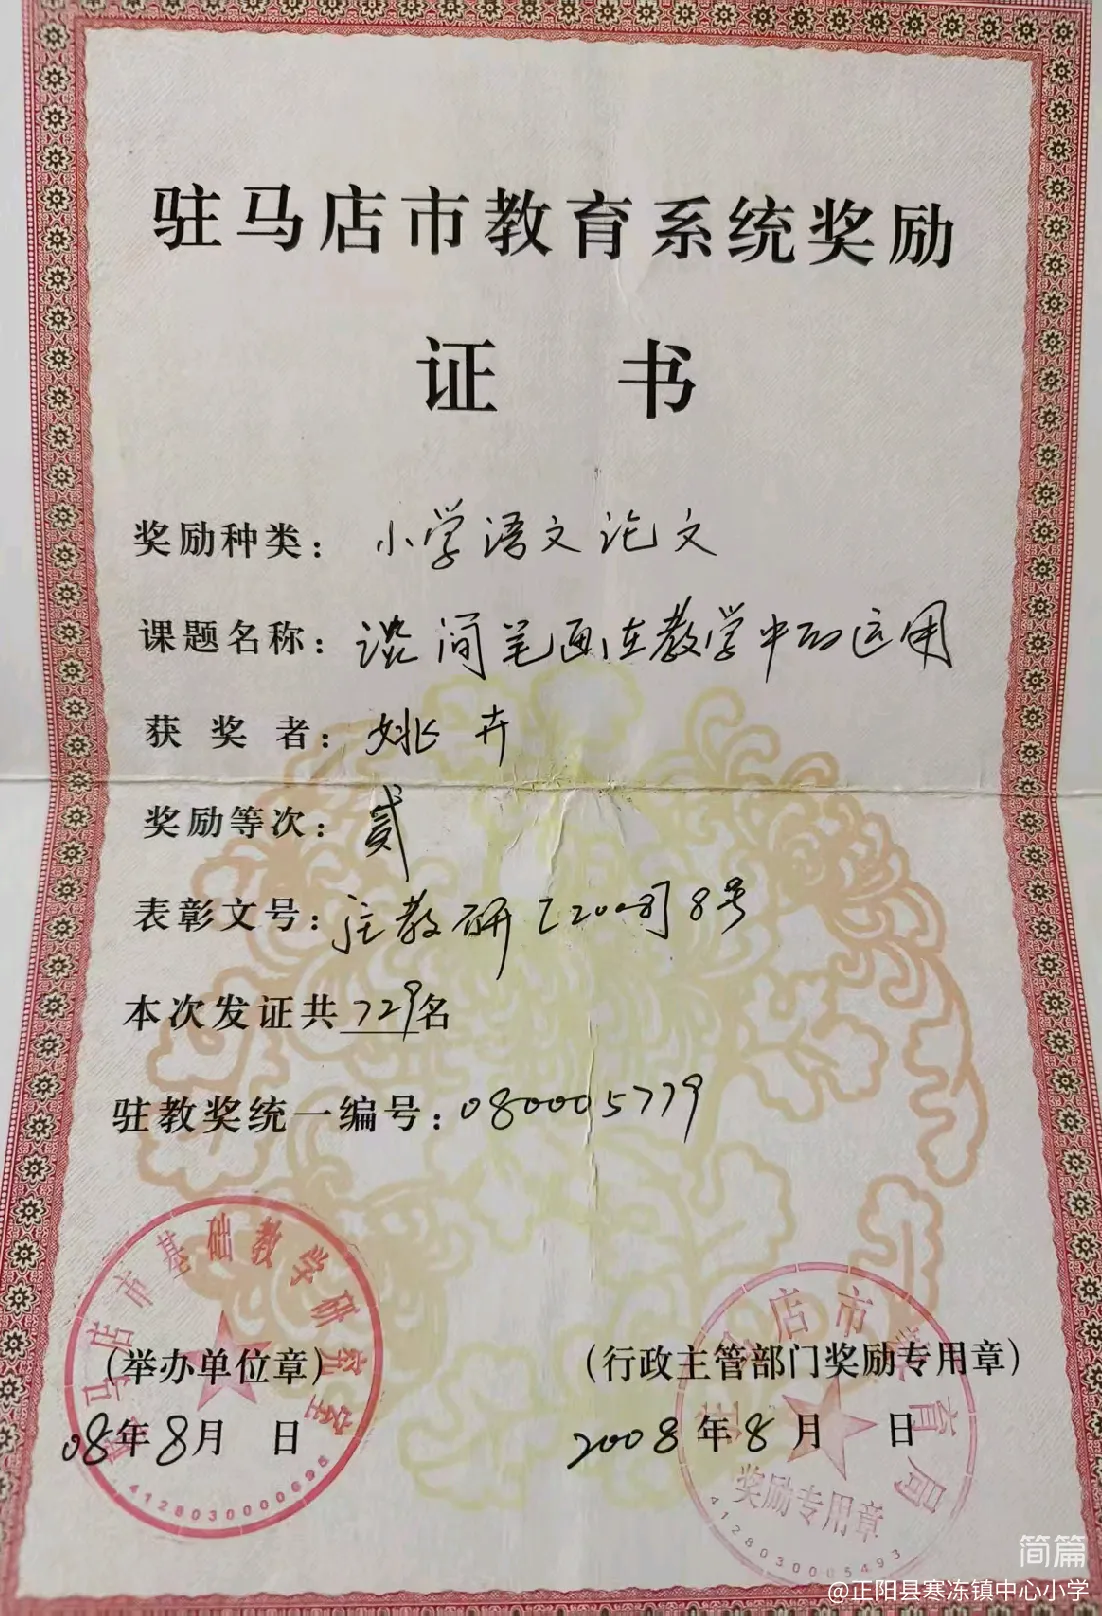 驻马店市教育系统奖励
证 书
奖励种类：小学语文论文
课题名称：谈简笔画在教学中的运用
获奖者：姚卉
奖励等次：贰
表彰文号：驻教研〔2008〕8号
本次发证共729名
驻教奖统一编号：080005779
驻马店市基础教学研究室
(举办单位章)
08年8月 日
4128030000695
驻马店市教育局
(行政主管部门奖励专用章)
2008年8月 日
奖励专用章
4128030005493
简篇
@正阳县寒冻镇中心小学